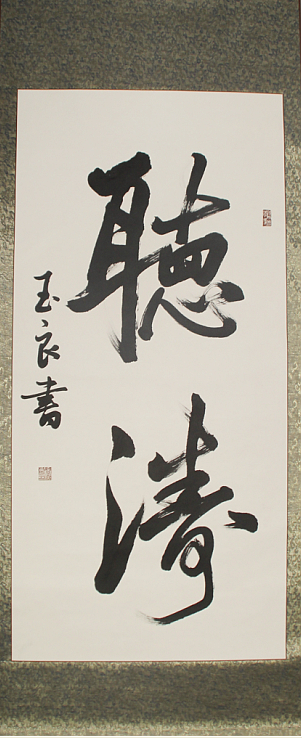 聽濤
玉良書